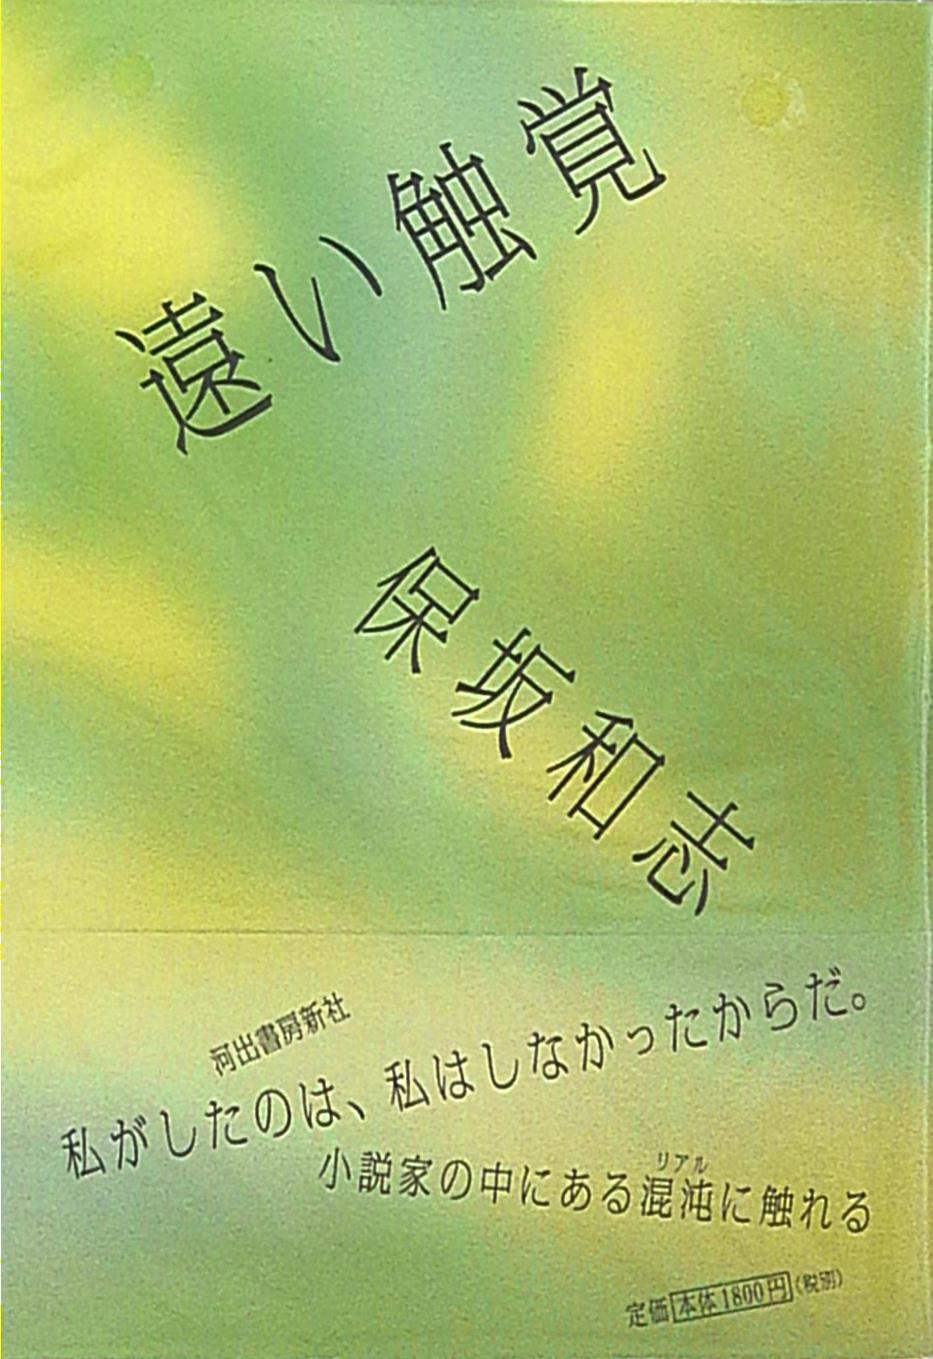 遠い触覚
保坂和志
河出書房新社
私がしたのは、私はしなかったからだ。
リアル
小説家の中にある混沌に触れる
定価本体1800円(税別)